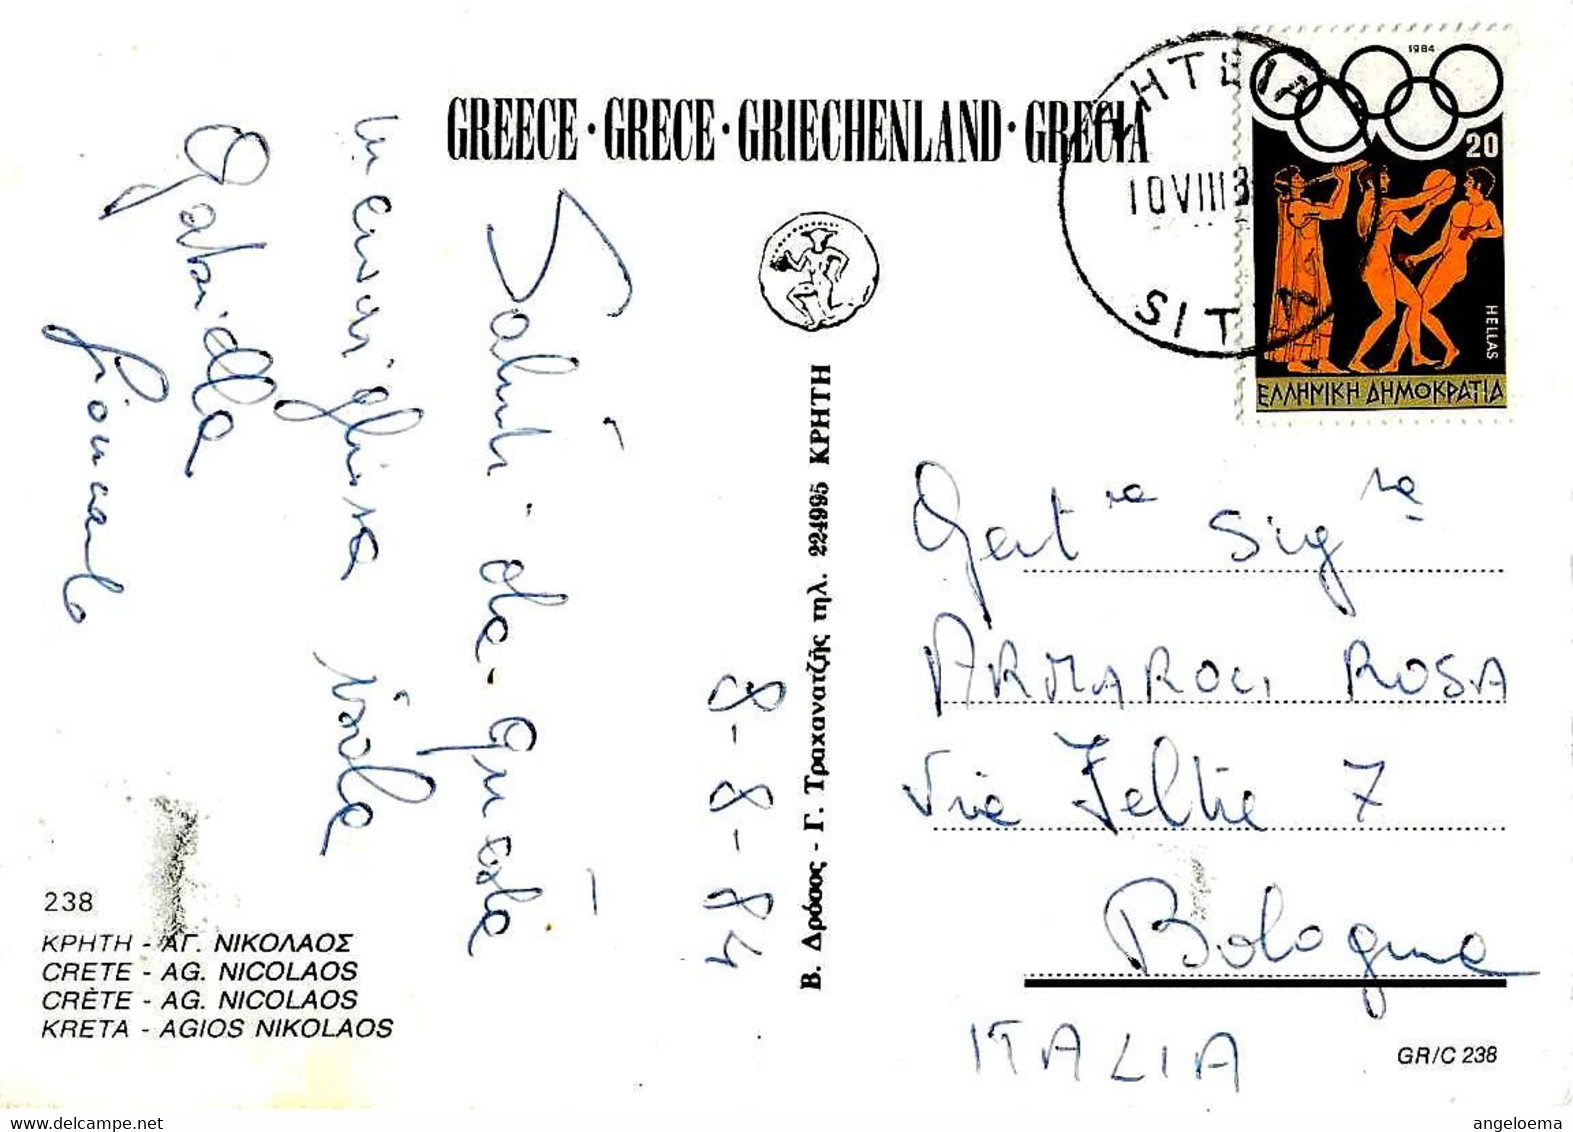 GREECE · GRECE · GRIECHENLAND · GRECIA
10 VIII 8
SIT
1984
20
HELLAS
ΕΛΛΗΝΙΚΗ ΔΗΜΟΚΡΑΤΙΑ
8-8-84
Saluti da questa
meravigliosa isola
Gabriella
Giancarlo
Β. Δρόσος - Γ. Τραχανατζής τηλ. 224995 ΚΡΗΤΗ
Gent.ma Sig.ra
ARMAROLI ROSA
Via Feltre 7
Bologna
ITALIA
238
ΚΡΗΤΗ - ΑΓ. ΝΙΚΟΛΑΟΣ
CRETE - AG. NICOLAOS
CRÈTE - AG. NICOLAOS
KRETA - AGIOS NIKOLAOS
GR/C 238
angeloema